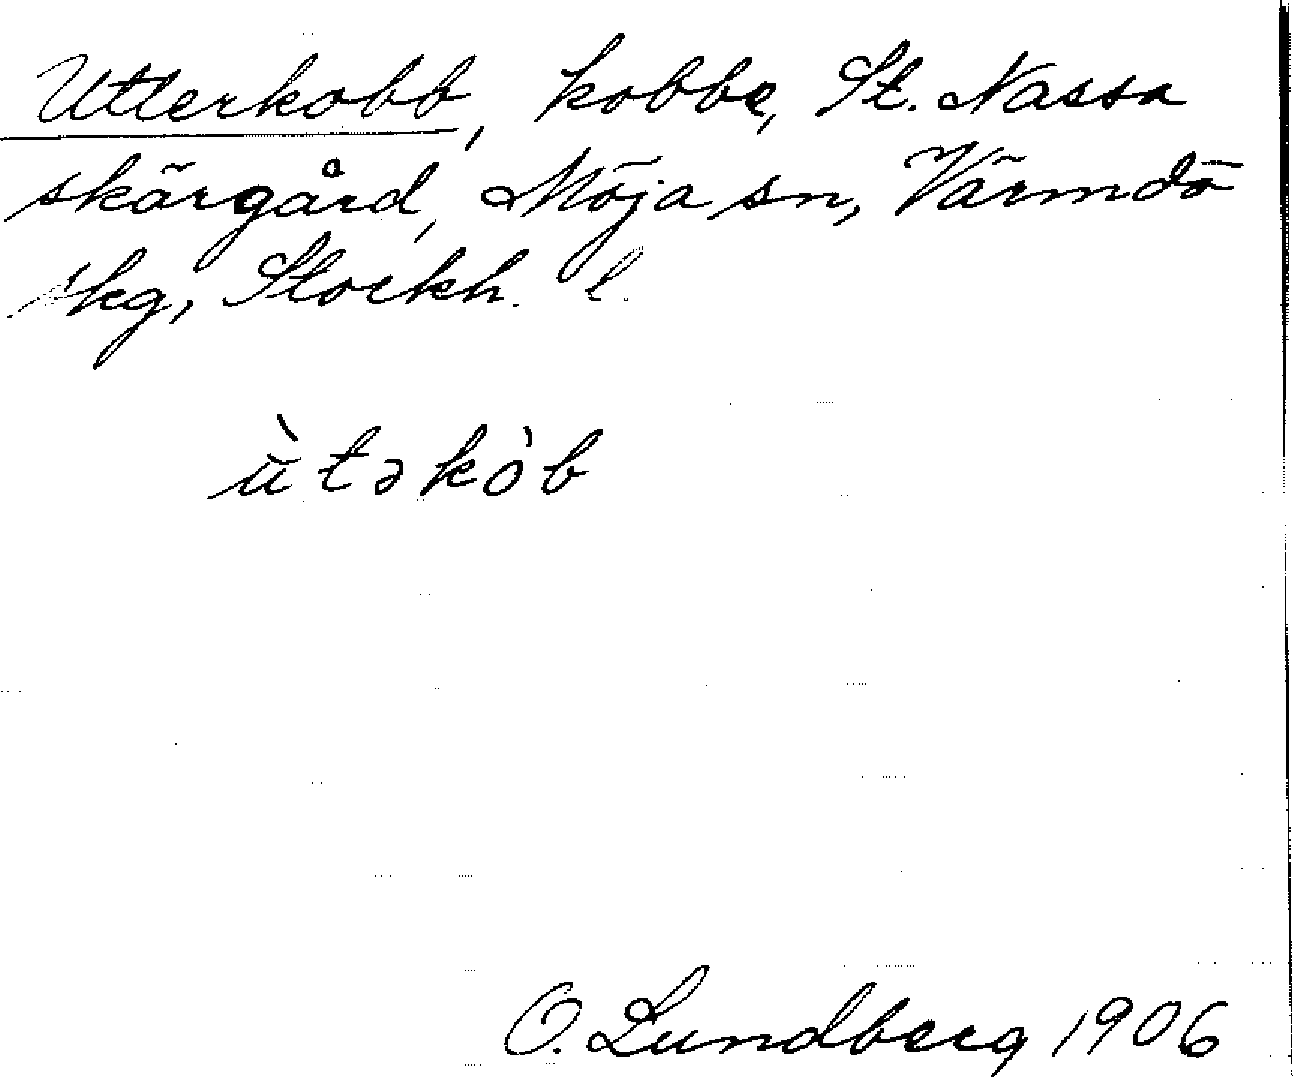 Utterkobb, kobbe, St. Nassa
skärgård, Möja sn, Värmdö
skg, Stockh. l.
ùtəkòb
O. Lundberg 1906